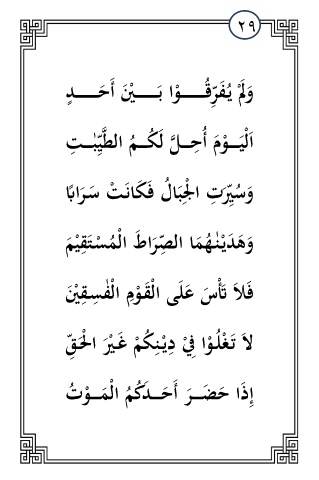 ٢٩
وَلَمْ يُفَرِّقُــوْا بَــيْنَ أَحَــدٍ
اَلْيَــوْمَ أُحِـلَّ لَكُـمُ الطَّيِّبٰـتِ
وَسُيِّرَتِ الْجِبَالُ فَكَانَتْ سَرَابًا
وَهَدَيْنٰهُمَا الصِّرَاطَ الْمُسْتَقِيْمَ
فَلاَ تَأْسَ عَلَى الْقَوْمِ الْفٰسِقِيْنَ
لاَ تَغْلُوْا فِيْ دِيْنِكُمْ غَيْرَ الْحَقِّ
إِذَا حَضَـرَ أَحَـدَكُمُ الْمَـوْتُ